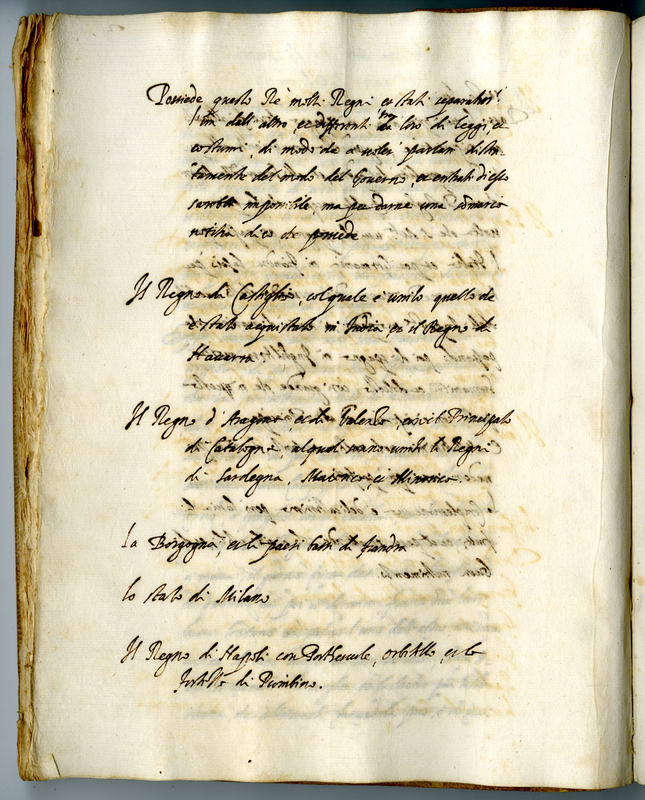 Possiede questo Rè molti Regni et stati separati
l'un dall'altro, et differenti di loro di leggi et
costumi, di modo che à voler parlar distin-
tamente del modo del Governo, et entrate di essi
sarebbe impossibile, ma per darne una
notitia dico che possiede
Il Regno di Castiglia, col quale è unito quello che
è stato acquistato in India, et il Regno di
Navarra
Il Regno d'Aragona, et di Valenza, con il Principato
di Catalogna, al qual sono uniti li Regni
di Sardegna, Maiorica, et Minorica.
La Borgogna, et li paesi bassi di fiandra
lo stato di Milano
Il Regno di Napoli con Porthercule, orbitello, et le
di Piombino.